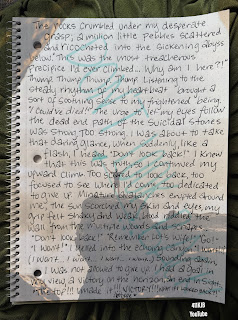 The rocks crumbled under my desperate
grasp; a million little pebbles scattered
and ricocheted into the sickening abyss
below. This was the most treacherous
precipice I'd ever climbed... Why am I here??!
Thump. Thump. Thump. Thump. Listening to the
steady rhythm of my heartbeat brought a
sort of soothing salve to my frightened being.
"I could've died!" The urge to let my eyes follow
the dead end path of the suicidal stones
was strong. Too strong. I was about to take
that daring glance, when suddenly, like a
flash, I heard, "Don't look back!" I knew
that this was truly so I continued my
upward climb. Too scared to look back, too
focused to see where I'd come, too dedicated
to give up. Miniature avalanches erupted around
me, the sun scorched my skin and eyes, my
grip felt shaky and weak, blood oozed
from the multiple wounds and scrapes...
"Don't look back!" "Remember Lot's wife!" "Go!"
"I Won't!" I yelled into the echoing canyon "I won't!
(I won't... I won't... I won't...)
I was not allowed to give up. I had a goal in
my view, a victory on the horizon, an end in sight.
The top!!! Finally!!! VICTORY!!!
4111KJB